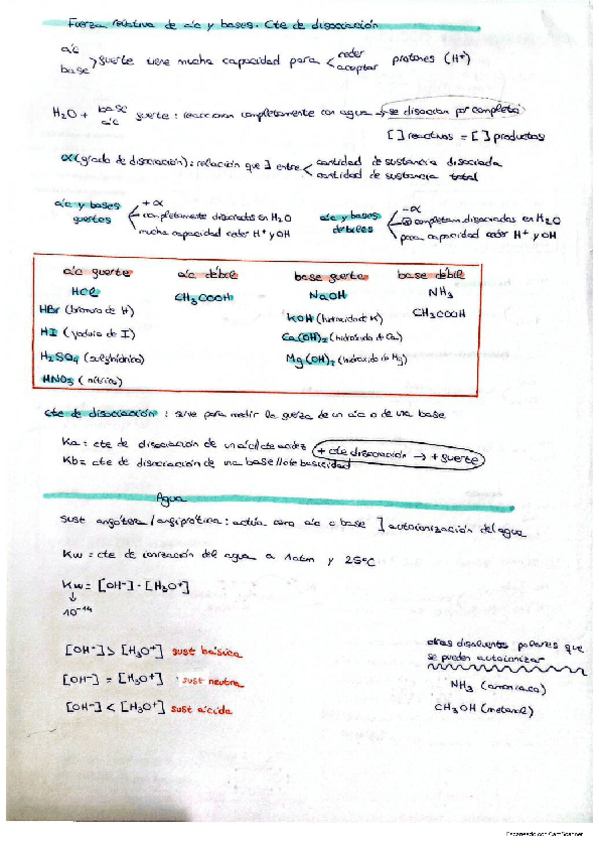 Fuerza relativa de ác y bases. Cte de disociación
ác
base > fuerte tiene mucha capacidad para < ceder
aceptar protones (H⁺)
H₂O + base
ác fuerte : reaccionan completamente con agua → se disocian por completo
[ ] reactivos = [ ] productos
α (grado de disociación) : relación que ∃ entre < cantidad de sustancia disociada
cantidad de sustancia total
ác y bases fuertes
+ α
completamente disociados en H₂O
mucha capacidad ceder H⁺ y OH
ác y bases débiles
- α
completam disociadas en H₂O
poca capacidad ceder H⁺ y OH
ác fuerte ác débil base fuerte base débil
HCl CH₃COOH NaOH NH₃
HBr (bromuro de H) KOH (hidróxido de K) CH₃COOH
HI (yoduro de I) Ca(OH)₂ (hidróxido de Ca)
H₂SO₄ (sulfhídrico) Mg(OH)₂ (hidróxido de Mg)
HNO₃ (nítrico)
cte de disociación : sirve para medir la fuerza de un ác o de una base
Ka = cte de disociación de un ác/cte acidez
Kb = cte de disociación de una base//cte basicidad
+ cte disociación → + fuerte
Agua
sust anfótera/anfiprótica : actúa como ác o base ] autoionización del agua
Kw = cte de ionización del agua a 1 atm y 25ºC
Kw = [OH⁻] · [H₃O⁺]
↓
10⁻¹⁴
[OH⁻] > [H₃O⁺] sust básica
[OH⁻] = [H₃O⁺] sust neutra
[OH⁻] < [H₃O⁺] sust ácida
otros disolventes polares que
se pueden autoionizar
NH₃ (amoniaco)
CH₃OH (metanol)
Escaneado con CamScanner